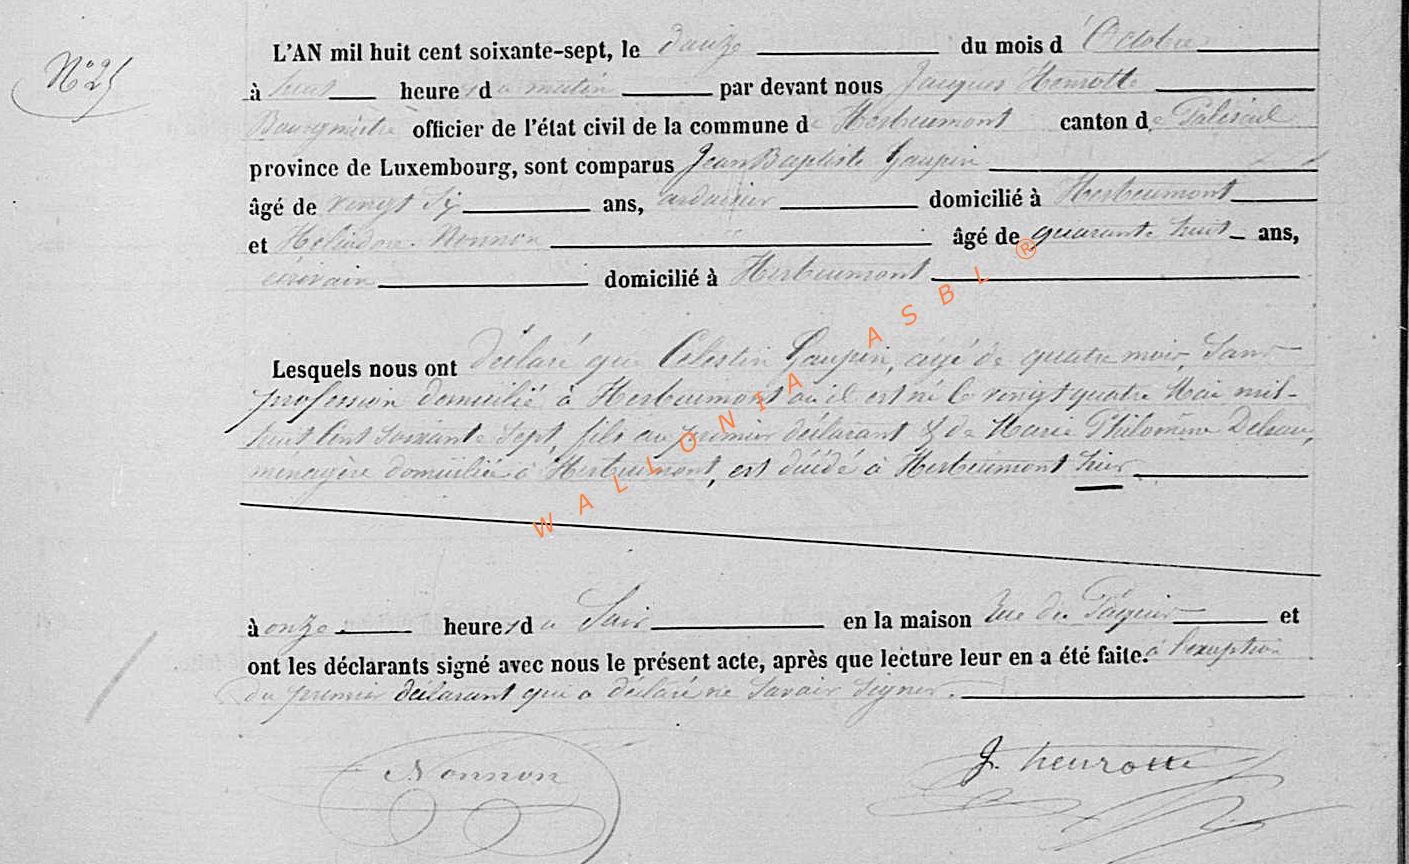 N° 25
L'AN mil huit cent soixante-sept, le douze du mois d'Octobre
à huit heures du matin par devant nous Jacques Henrotte
Bourgmestre officier de l'état civil de la commune de Herbeumont canton de Paliseul
province de Luxembourg, sont comparus Jean Baptiste Gaupin
âgé de vingt six ans, ardoisier domicilié à Herbeumont
et Nonnon âgé de quarante huit ans,
écrivain domicilié à Herbeumont
Lesquels nous ont déclaré que Célestin Gaupin, agé de quatre mois, Sans
profession domicilié à Herbeumont où il est né le vingt quatre Mai mil-
huit Cent Soixante Sept, fils au premier déclarant & de Marie Philomène
ménagère domiciliée à Herbeumont, est décédé à Herbeumont hier
à onze heures du Soir en la maison rue du et
ont les déclarants signé avec nous le présent acte, après que lecture leur en a été faite. à l'exception
du premier déclarant qui a déclaré ne Savoir Signer.
Nonnon J. henrotte
WALLONIA ASBL ®